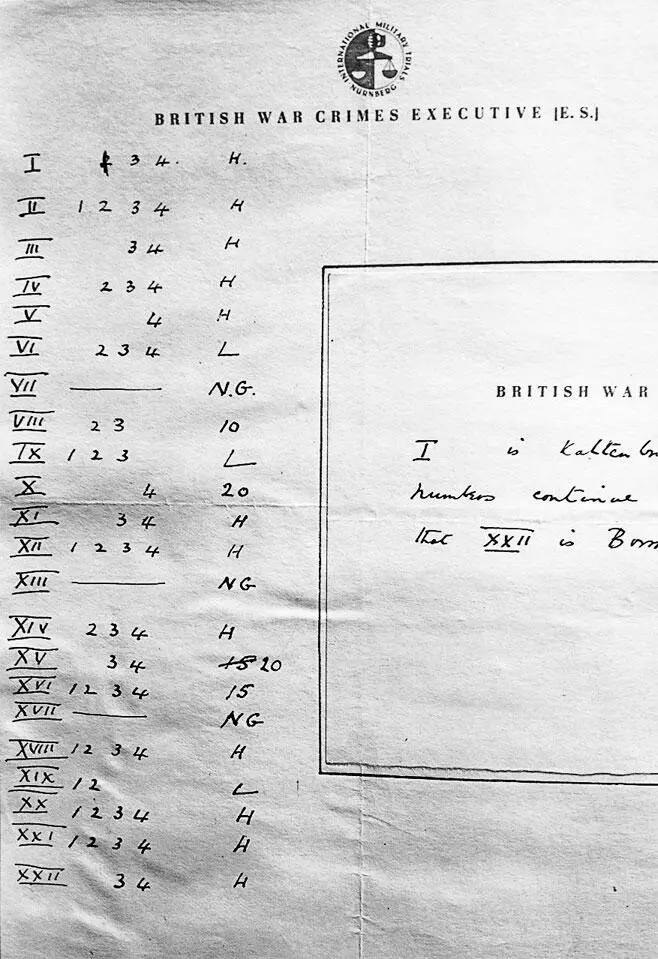 INTERNATIONAL MILITARY TRIALS
NURNBERG
BRITISH WAR CRIMES EXECUTIVE [E.S.]
I 3 4. H.
II 1 2 3 4 H
III 3 4 H
IV 2 3 4 H
V 4 H
VI 2 3 4 L
VII — N.G.
VIII 2 3 10
IX 1 2 3 L
X 4 20
XI 3 4 H
XII 1 2 3 4 H
XIII — NG
XIV 2 3 4 H
XV 3 4 15 20
XVI 1 2 3 4 15
XVII — NG
XVIII 1 2 3 4 H
XIX 1 2 L
XX 1 2 3 4 H
XXI 1 2 3 4 H
XXII 3 4 H
BRITISH WAR
I is Kaltenbr
numbers continue
that XXII is Borm